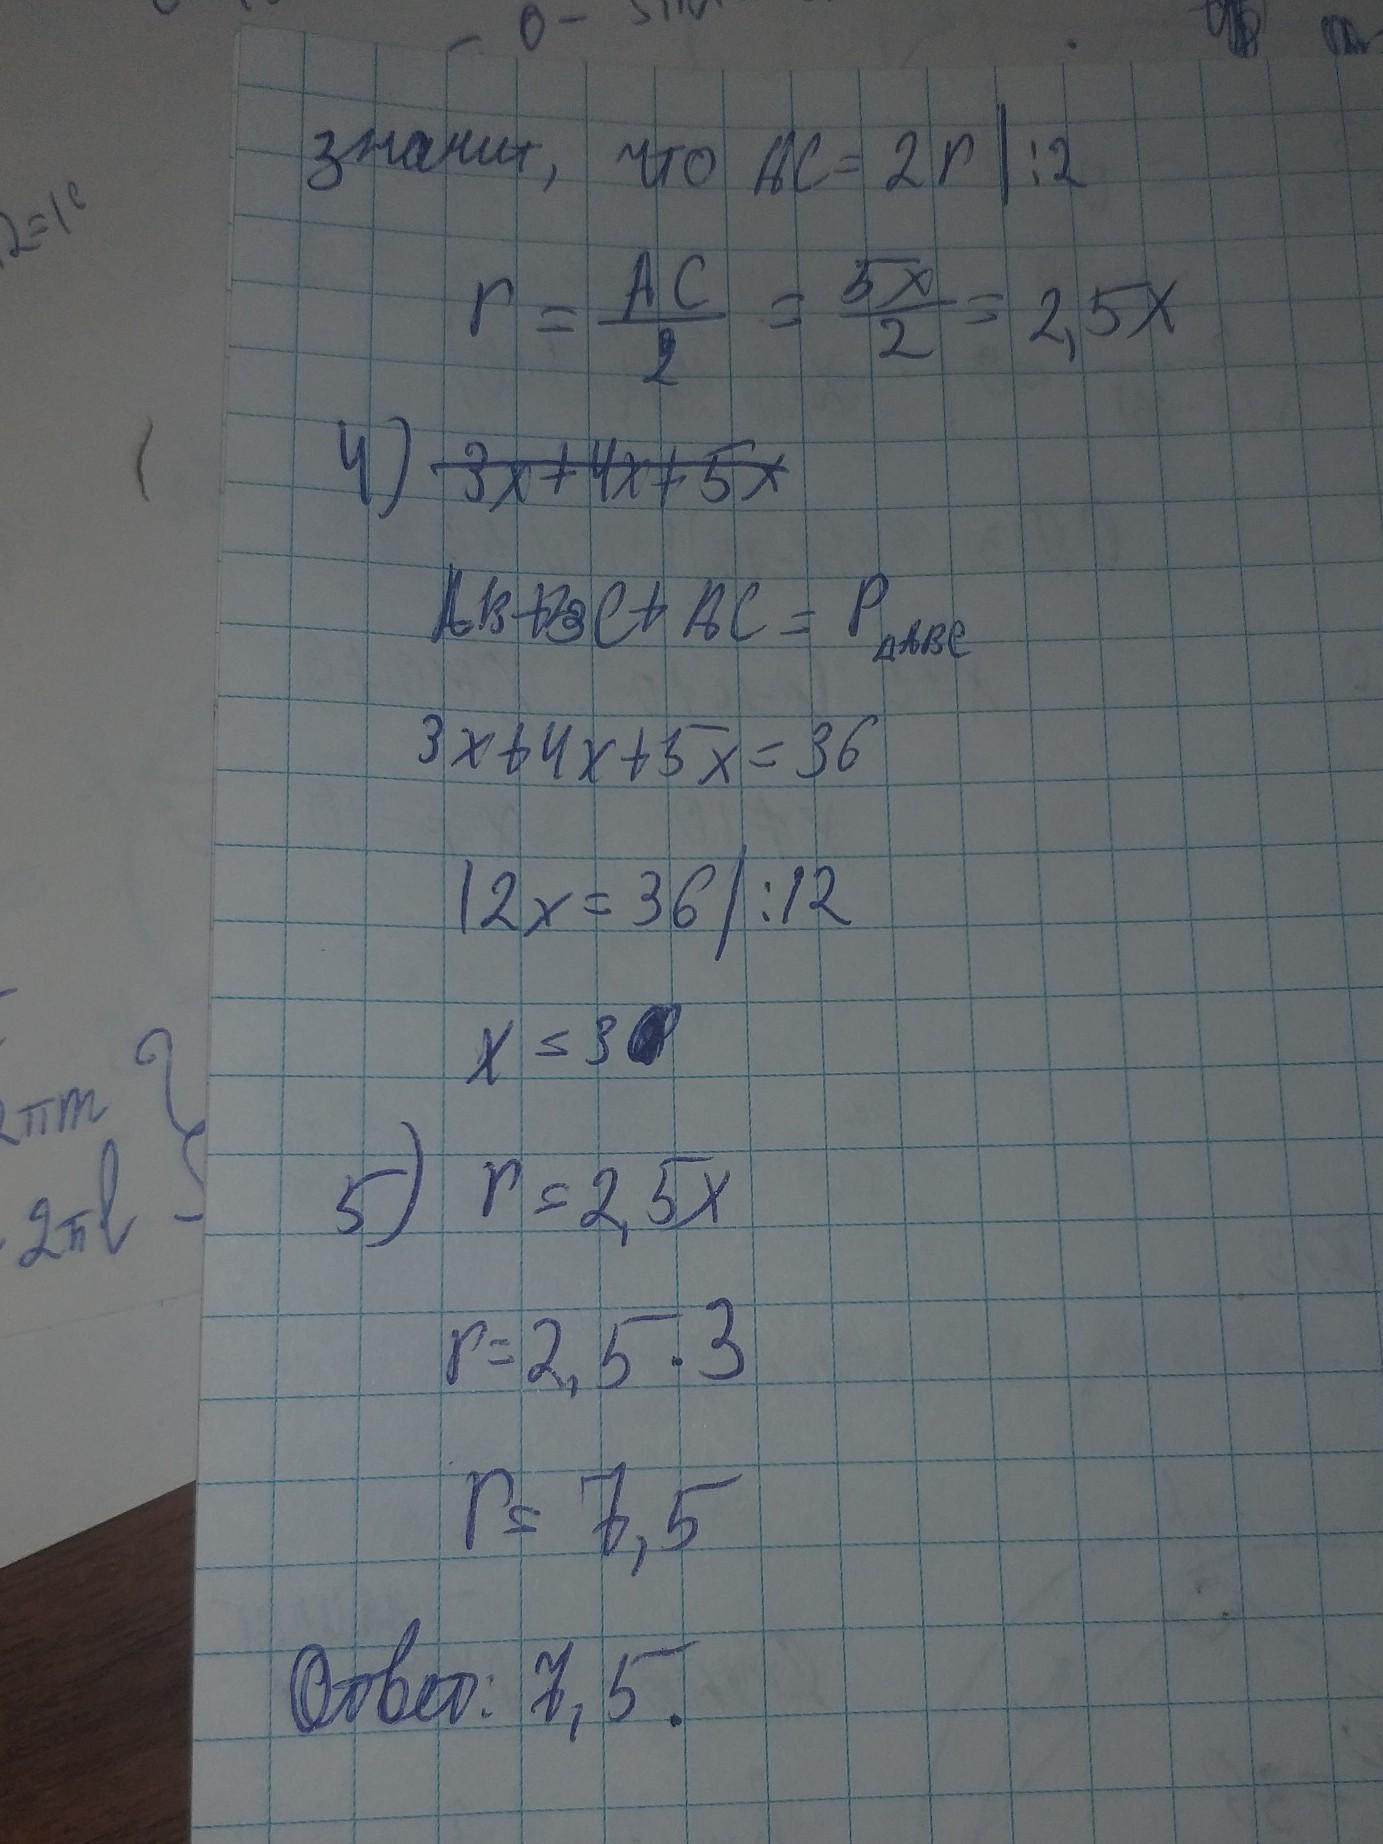 значит, что AC = 2r |:2
r = AC/2 = 5x/2 = 2,5x
4) 3x+4x+5x
AB+BC+AC = P△ABC
3x+4x+5x=36
12x=36 |:12
x=3
5) r=2,5x
r=2,5·3
r=7,5
Ответ: 7,5.
2πm
2πl -